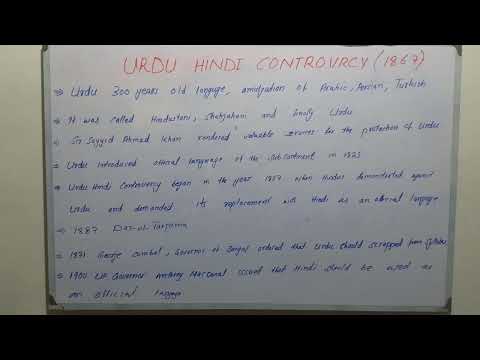 URDU HINDI CONTROVRCY (1867)
→ Urdu 300 years old language, amalgation of Arabic, Persian, Turkish
→ It was called Hindustani, Shahjahani and finally Urdu
→ Sir Sayyid Ahmad Khan rendered valuable services for the protection of Urdu
→ Urdu introduced official language of the subcontinent in 1825
→ Urdu Hindi Controversy began in the year 1867 when Hindus demonstrated against
Urdu and demanded its replacement with Hindi as an official language
→ 1887 Dar-ul-Tarjama
→ 1871 George Governor of Bengal ordered that Urdu should scrapped from syllabus
→ 1900 U.P Governor Antony that Hindi should be used as
an official language